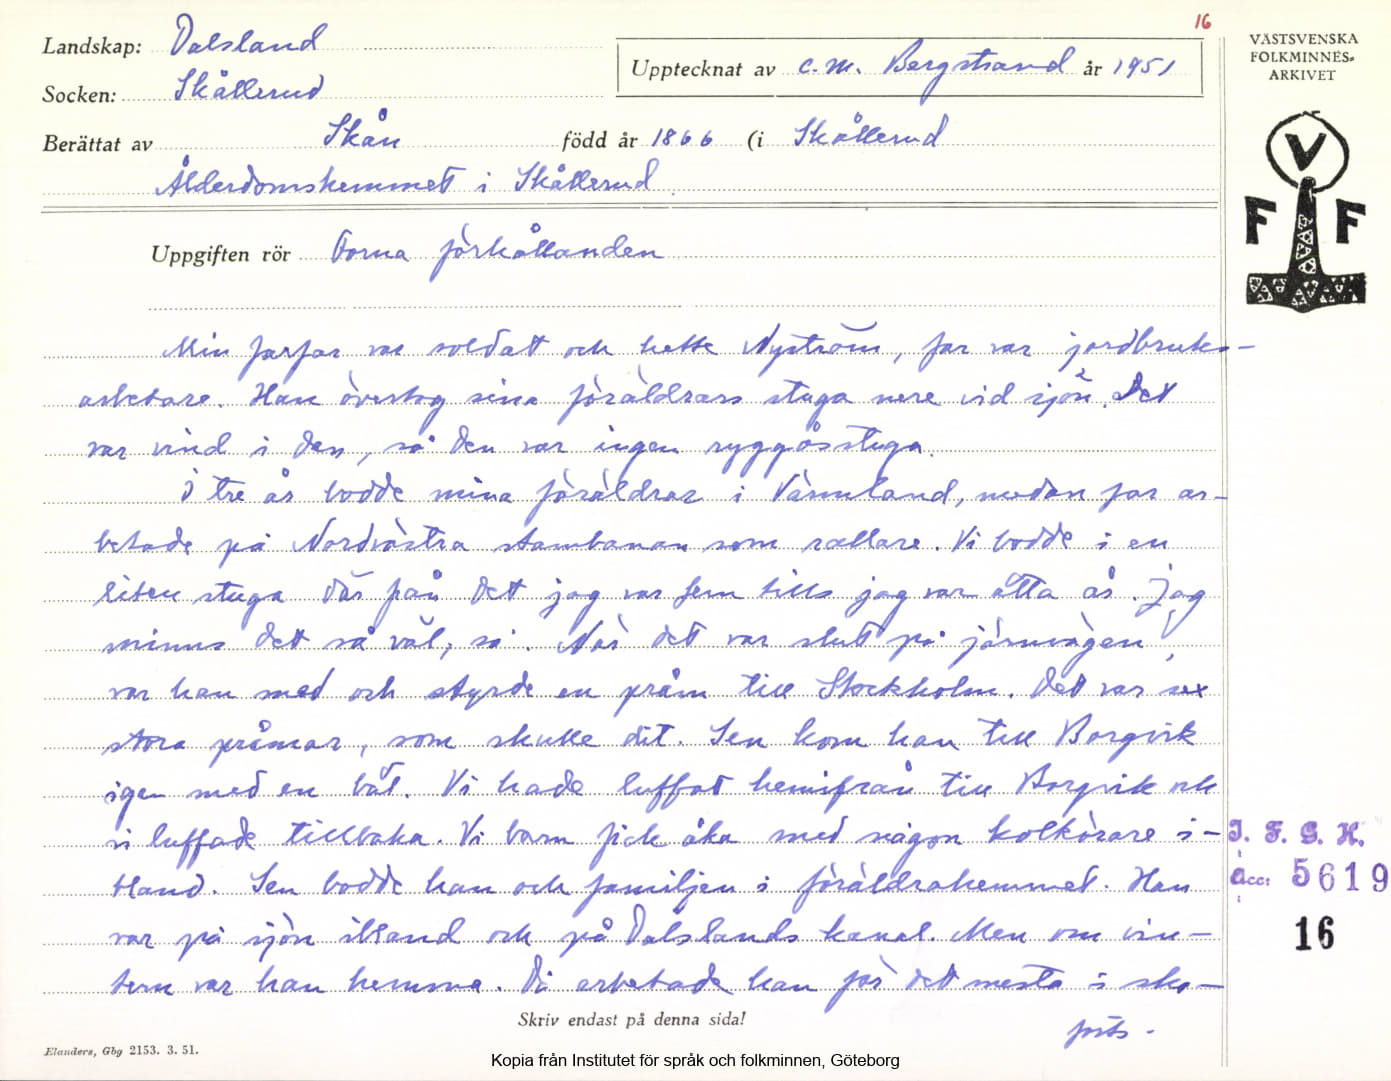 16
Landskap: Dalsland
Upptecknat av C. M. Bergstrand år 1951
VÄSTSVENSKA
FOLKMINNES-
ARKIVET
Socken: Skållerud
Berättat av Skån född år 1866 (i Skållerud
Ålderdomshemmet i Skållerud
V
F F
Uppgiften rör Forna förhållanden
Min farfar var soldat och hette Nyström, far var jordbruks-
arbetare. Han övertog sina föräldrars stuga nere vid sjön. Det
var vind i den, så den var ingen ryggåsstuga.
I tre år bodde mina föräldrar i Värmland, medan far ar-
betade på Nordvästra stambanan som rallare. Vi bodde i en
liten stuga där från det jag var fem tills jag var åtta år. Jag
minns det så väl, så. När det var slut på järnvägen,
var han med och styrde en pråm till Stockholm. Det var sex
stora pråmar, som skulle dit. Sen kom han till Borgvik
igen med en båt. Vi hade luffat hemifrån till Borgvik och
vi luffade tillbaka. Vi barn fick åka med någon kolkörare i-
bland. Sen bodde han och familjen i föräldrahemmet. Han
var på sjön ibland och på Dalslands kanal. Men om vin-
tern var han hemma. Då arbetade han för det mesta i sko-
forts-
I. F. G. H.
acc: 5619
16
Skriv endast på denna sida!
Elanders, Gbg 2153. 3. 51.
Kopia från Institutet för språk och folkminnen, Göteborg